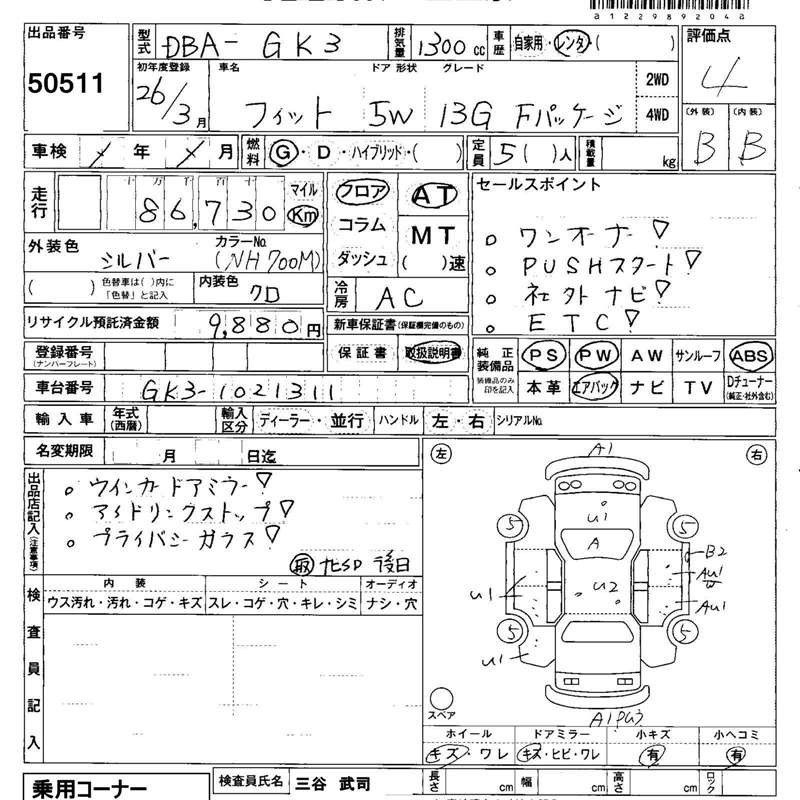 a12298920 4a
出品番号 型式 DBA- GK3 排気量 1300 cc 車歴 自家用・レンタ( ) 評価点
50511 4
初年度登録 車名 ドア 形状 グレード 2WD
26/3月 フィット 5W 13G Fパッケージ 4WD
(外装) (内装)
B B
車検 年 月 燃料 G・D・ハイブリッド・( ) 定員 5( )人 積載量 kg
走行 十万 千 百 十 マイル フロア AT セールスポイント
86,730 Km
コラム MT 。ワンオーナー!
外装色 シルバー カラーNo. (NH700M) ダッシュ ( )速 。PUSHスタート!
( ) 色替車は( )内に「色替」と記入 内装色 クロ 冷房 AC 。社外ナビ!
リサイクル預託済金額 9,880円 新車保証書(保証欄完備のもの) 。ETC!
登録番号(ナンバープレート) 保証書 取扱説明書 純正装備品 PS PW AW サンルーフ ABS
車台番号 GK3-1021311 装備品のみ印を記入 本革 エアバック ナビ TV Dチューナー(純正・社外含む)
輸入車 年式(西暦) 輸入区分 ディーラー・並行 ハンドル 左・右 シリアルNo.
名変期限 月 日迄 左 右
出品店記入(注意事項) 。ウインカードアミラー!
。アイドリングストップ!
。プライバシーガラス!
取 ナビSD 後日
検査員記入 内装 シート オーディオ
ウス汚れ・汚れ・コゲ・キズ スレ・コゲ・穴・キレ・シミ ナシ・穴
A1
U1
5 5
A B2
AU1
W
U1 U2 AU1
5 5
U1
スペア A1PG3
ホイール ドアミラー 小キズ 小ヘコミ
キズ・ワレ キズ・ヒビ・ワレ 有 有
乗用コーナー 検査員氏名 三谷 武司 長さ cm 幅 cm 高さ cm ロック